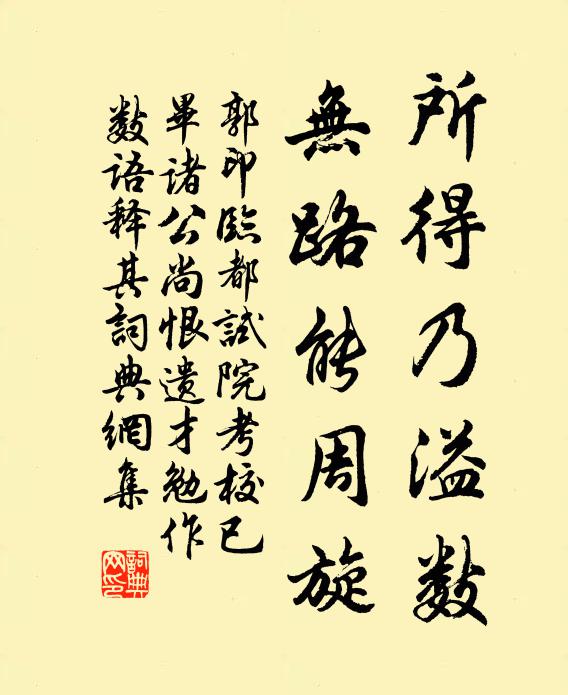 所得乃溢数
無路能周旋
郭印臨都試院考校已
畢諸公尚恨遺才勉作
数語释其詞典網集
詞典網印